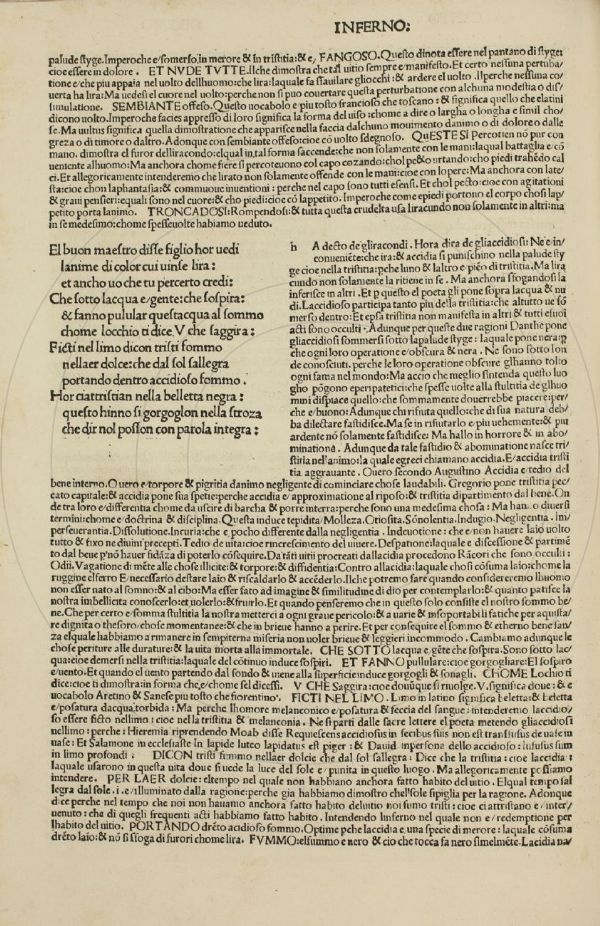 INFERNO:
palude styge. Imperoche e/somerso, in merore & in tristitia: & e/ FANGOSO. Questo dinota essere nel pantano di styge:
cioe essere in dolore. ET NVDE TVTTE. Ilche dimostra che tal uitio sempre e/manifesto. Et certo nessuna perturba
tione e/che piu appaia nel uolto dellhuomo: che lira: laquale fa sfauillare gliocchi: & ardere el uolto. Ilperche nessuna co/
uerta ha lira: Ma uedesi el cuore nel uolto: perche non si puo couertare questa perturbatione con alchuna modestia o dis/
simulatione. SEMBIANTE offeso. Questo uocabolo e piu tosto francioso che toscano: & significa quello che elatini
dicono uolto. Imperoche facies appresso di loro significa la forma del uiso: chome a dire o largha o longha e simil cho/
se. Ma uultus significa quella dimostratione che apparisce nella faccia dalchuno mouimento danimo o di dolore o dalle
greza o di timore o daltro. Adonque con sembiante offeso: cioe cō uolto sdegnoso. QUESTE SI Percotien nō pur con
mano. dimostra el furor delliracondo: elqual in tal forma saccende: che non solamente con le mani: laqual battaglia e/cō
ueniente alhuomo: Ma anchora chome fiere si percoteuono col capo cozando: chol pecto urtando: cho piedi trahēdo cal
ci. Et allegoricamente intenderemo che lirato non solamente offende con le mani: cioe con lopere: Ma anchora con late/
sta: cioe chon laphantasia: & commuoue inuentioni: perche nel capo sono tutti esensi. Et chol pecto: cioe con agitationi
& graui pensieri: equali sono nel cuore: & cho piedi: cioe cō lappetito. Imperoche come epiedi portono el corpo chosi lap/
petito porta lanimo. TRONCADOSI: Rompendosi: & tutta questa crudelta usa liracundo non solamente in altri: ma
in se medesimo: chome spesse uolte habbiamo ueduto.
El buon maestro disse figlio hor uedi
lanime di color cui uinse lira:
et ancho uo che tu per certo credi:
Che sotto lacqua e/gente: che sospira:
& fanno pulular quest acqua al sommo
chome locchio ti dice, V che saggira:
Ficti nel limo dicon tristi fommo
nellaer dolce: che dal sol sallegra
portando dentro accidioso fommo.
Hor ci attristian nella belletta negra:
questo hinno si gorgoglion nella stroza
che dir nol posson con parola integra:
h A decto de gliracondi. Hora dira de gliaccidiosi: Ne e/in/
conueniēte: che ira: & accidia si punischino nella palude sty
ge cioe nella tristitia: pche luno & laltro e piēo di tristitia. Ma lira
cundo non solamente la ritiene in se. Ma anchora sfogandosi la
inferisce in altri. Et p questo el poeta gli pone sopra lacqua & nu
di. Laccidioso participa tanto piu della tristitia: che altutto ue sō
merso dentro: Et epsa tristitia non manifesta in altri & tutti esuoi
acti sono occulti. Adunque per queste due ragioni Danthe pone
gliaccidiosi sommersi sotto lapalude styge: laquale pone nera: p
che ogni loro operatione e/obscura & nera. Ne sono sotto lon
de conosciuti. perche le loro operatione obscure glhanno tolto
ogni fama nel mondo: Ma accio che meglio sintenda questo luo
gho pōgono eperipatetici: che spesse uolte alla stultitia de glhuo
mini dispiace quello: che sommamente douerrebbe piacere: per/
che e/buono: Adunque chi rifiuta quello: che di sua natura deb/
ba dilectare fastidisce. Ma se in rifiutarlo e/piu uehemente: & piu
ardente nō solamente fastidisce: Ma hallo in horrore & in abo/
minatione. Adunque da tale fastidio & abominatione nasce tri/
stitia nellanimo: la quale egreci chiamano accidia. E/accidia tristi
tia aggrauante. Ouero secondo Augustino Accidia e/tedio del
bene interno. Ouero e/torpore & pigritia danimo negligente di cominciare chose laudabili. Gregorio pone tristitia pec/
cato capitale: & accidia pone sua spetie: perche accidia e/approximatione al riposo: & tristitia dipartimento dal bene. On
de tra loro e/differentia chome da uscire di barcha & porre interra: perche sono una medesima chosa: Ma hanno diuersi
termini: chome e/doctrina & disciplina. Questa induce tepidita/Molleza. Otiosita. Sōnolentia. Indugio. Negligentia. Im/
perseuerantia. Dissolutione. Incuria: che e/ pocho differente dalla negligentia. Indeuotione: che e/non hauere laio uolto
tutto & fixo ne diuini precepti. Tedio de uita: cioe increscimento del uiuere. Desperatione: laquale e discessione & partimē
to dal bene p nō hauer fidāza di poterlo cōsequire. Da tāti uitii procreati dallacidia procedono Rācori che sono occulti:
Odii. Vagatione di mēte alle chose illicite: & torpore: & diffidentia: Contro allacidia: laquale chosi cōsuma laio: chome la
ruggine elferro E/necessario destare laio & riscaldarlo & accēderlo. Ilche potremo fare quando considereremo lhuomo
non esser nato al somno: & al cibo: Ma esser fato ad imagine & similitudine di dio per contemplarlo: & quanto patisce la
nostra imbellicita conoscerlo: et uolerlo: & fruirlo. Et quando penseremo che in questo solo consiste el nostro sommo be/
ne. Che per certo e somma stultitia la nostra metterci a ogni graue pericolo: & a uarie & insopportabili fatiche per aquista/
re dignita o thesoro/ chose momentanee: & che in brieue hanno a perire. Et per consequire el sommo & etherno bene san/
za elquale habbiamo a rimanere in sempiterna miseria non uoler brieue & leggieri incommodo. Cambiamo adunque le
chose periture alle durature: & la uita morta alla immortale. CHE SOTTO lacqua e gēte che sospira. Sono sotto lac/
qua: cioe demersi nella tristitia: laquale del cōtinuo induce sospiri. ET FANNO pullulare: cioe gorgogliare: El sospiro
e/uento: Et quando el uento partendo dal fondo & uiene alla superficie induce gorgogli & sonagli. CHOME Lochio ti
dice: cioe ti dimostra in forma che/e chome/sel dicessi. V CHE Saggira cioe douūque si riuolge. V. significa doue: & e
uocabolo Aretino & Sanese piu tosto che fiorentino. FICTI NEL LIMO. Limo in latino significa belletta: & beletta
e/posatura dacqua torbida: Ma perche lhomore melanconico e/posatura & feccia del sangue: intenderemo laccidio/
so essere ficto nel limo: cioe nella tristitia & melanconia. Ne si parti dalle sacre lettere el poeta metendo gliaccidiosi
nel limo: perche: Hieremia riprendendo Moab disse Requiescens accidiosus in fecibus suis non est transfusus de uase in
uase: Et Salamone in ecclesiaste In lapide luteo lapidatus est piger: & Dauid inpersona dello accidioso: Infusus sum
in limo profundi: DICON tristi fummo nellaer dolcie che dal sol sallegra: Dice che la tristitia: cioe lacidia:
laquale usarono in questa uita doue si uede la luce del sole e/ punita in questo luogo. Ma allegoricamente possiamo
intendere. PER LAER dolcie: el tempo nel quale non habbiamo anchora fatto habito del uitio. El qual tempo sal
legra dal sole. i. e/illuminato dalla ragione: perche gia habbiamo dimostro chel sole si piglia per la ragione. Adonque
dice perche nel tempo che noi non hauamo anchora fatto habito del uitio noi fumo tristi: cioe ci attristiano e/ inter/
uenuto: che di quegli frequenti acti habbiamo fatto habito. Intendendo linferno nel quale non e/ redemptione per
lhabito del uitio. PORTANDO drēto acidioso fommo. Optime pche laccidia e una specie di merore: laquale cōsuma
drēto laio: & nō si sfoga di furori chome lira. FVMMO: el fummo e nero & cio che tocca fa nero simelmēte. Lacidia na/